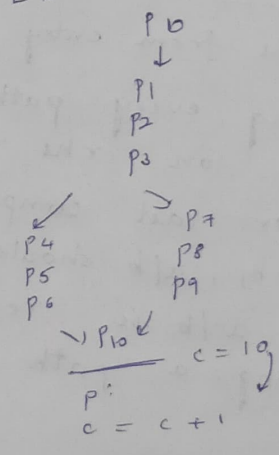 P0
P1
P2
P3
P4
P5
P6
P7
P8
P9
P10
c = 10
P:
c = c + 1